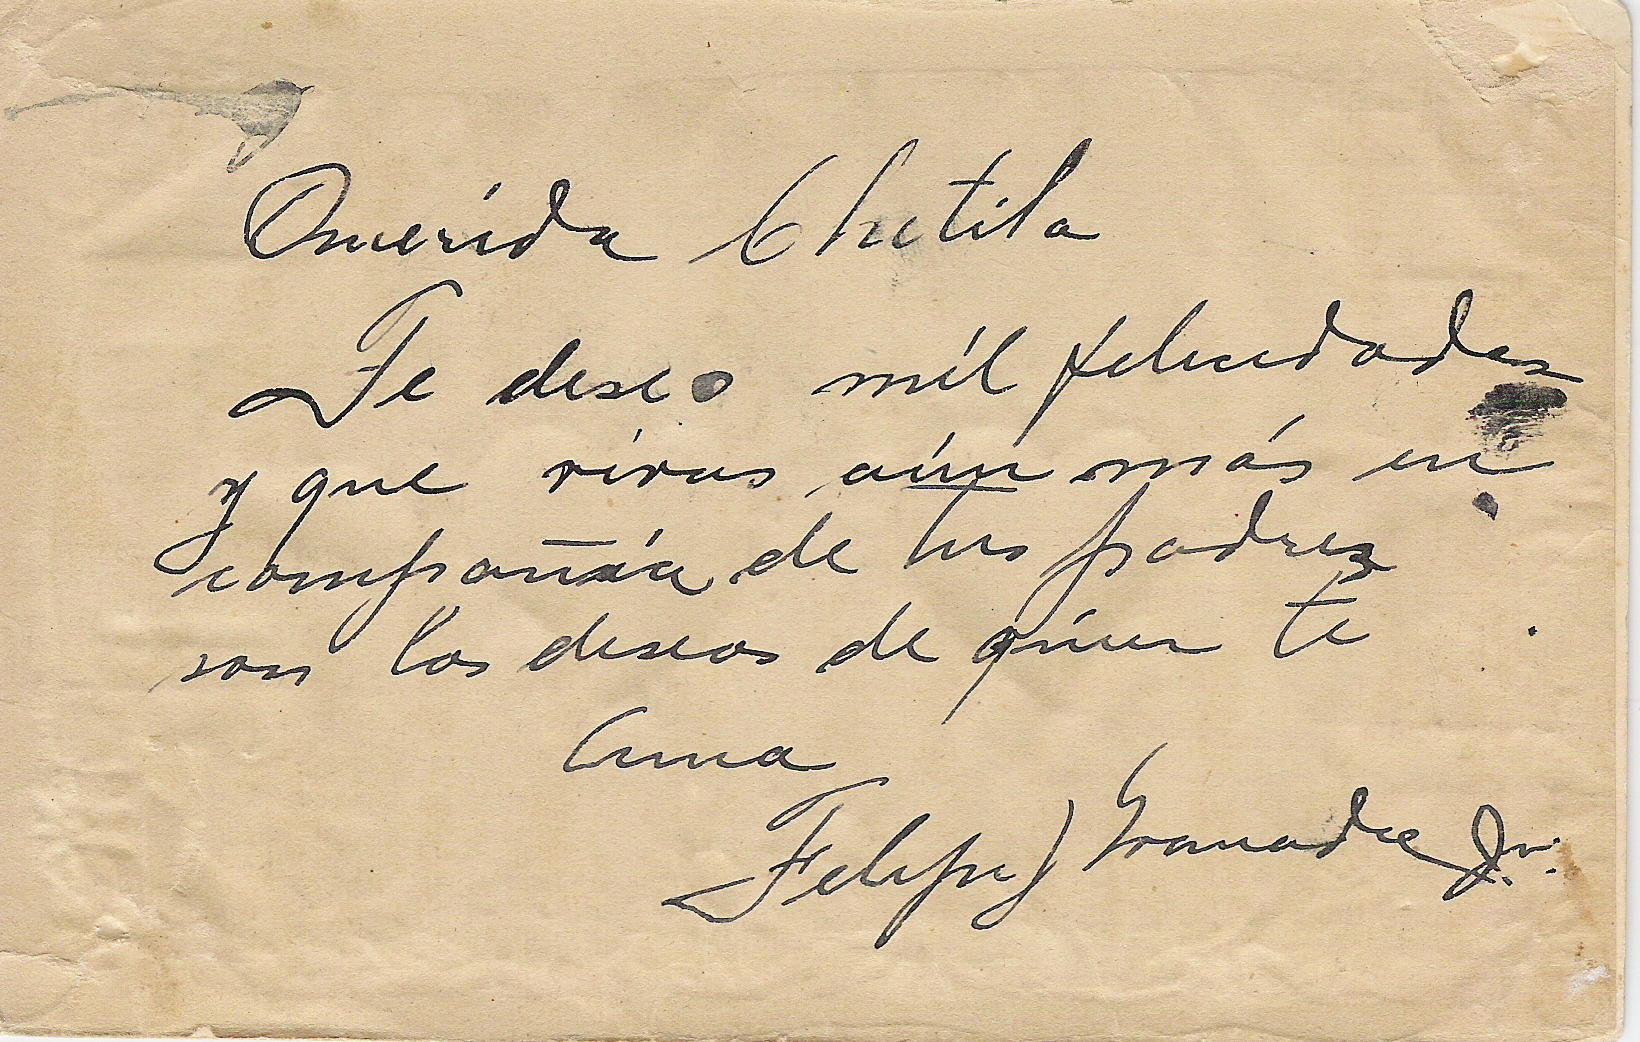 Querida Chatila
Te deseo mil felicidades
y que vivas aún más en
compañía de tus padres
son los deseos de quien te
ama
Felipe J Granadre Jr.